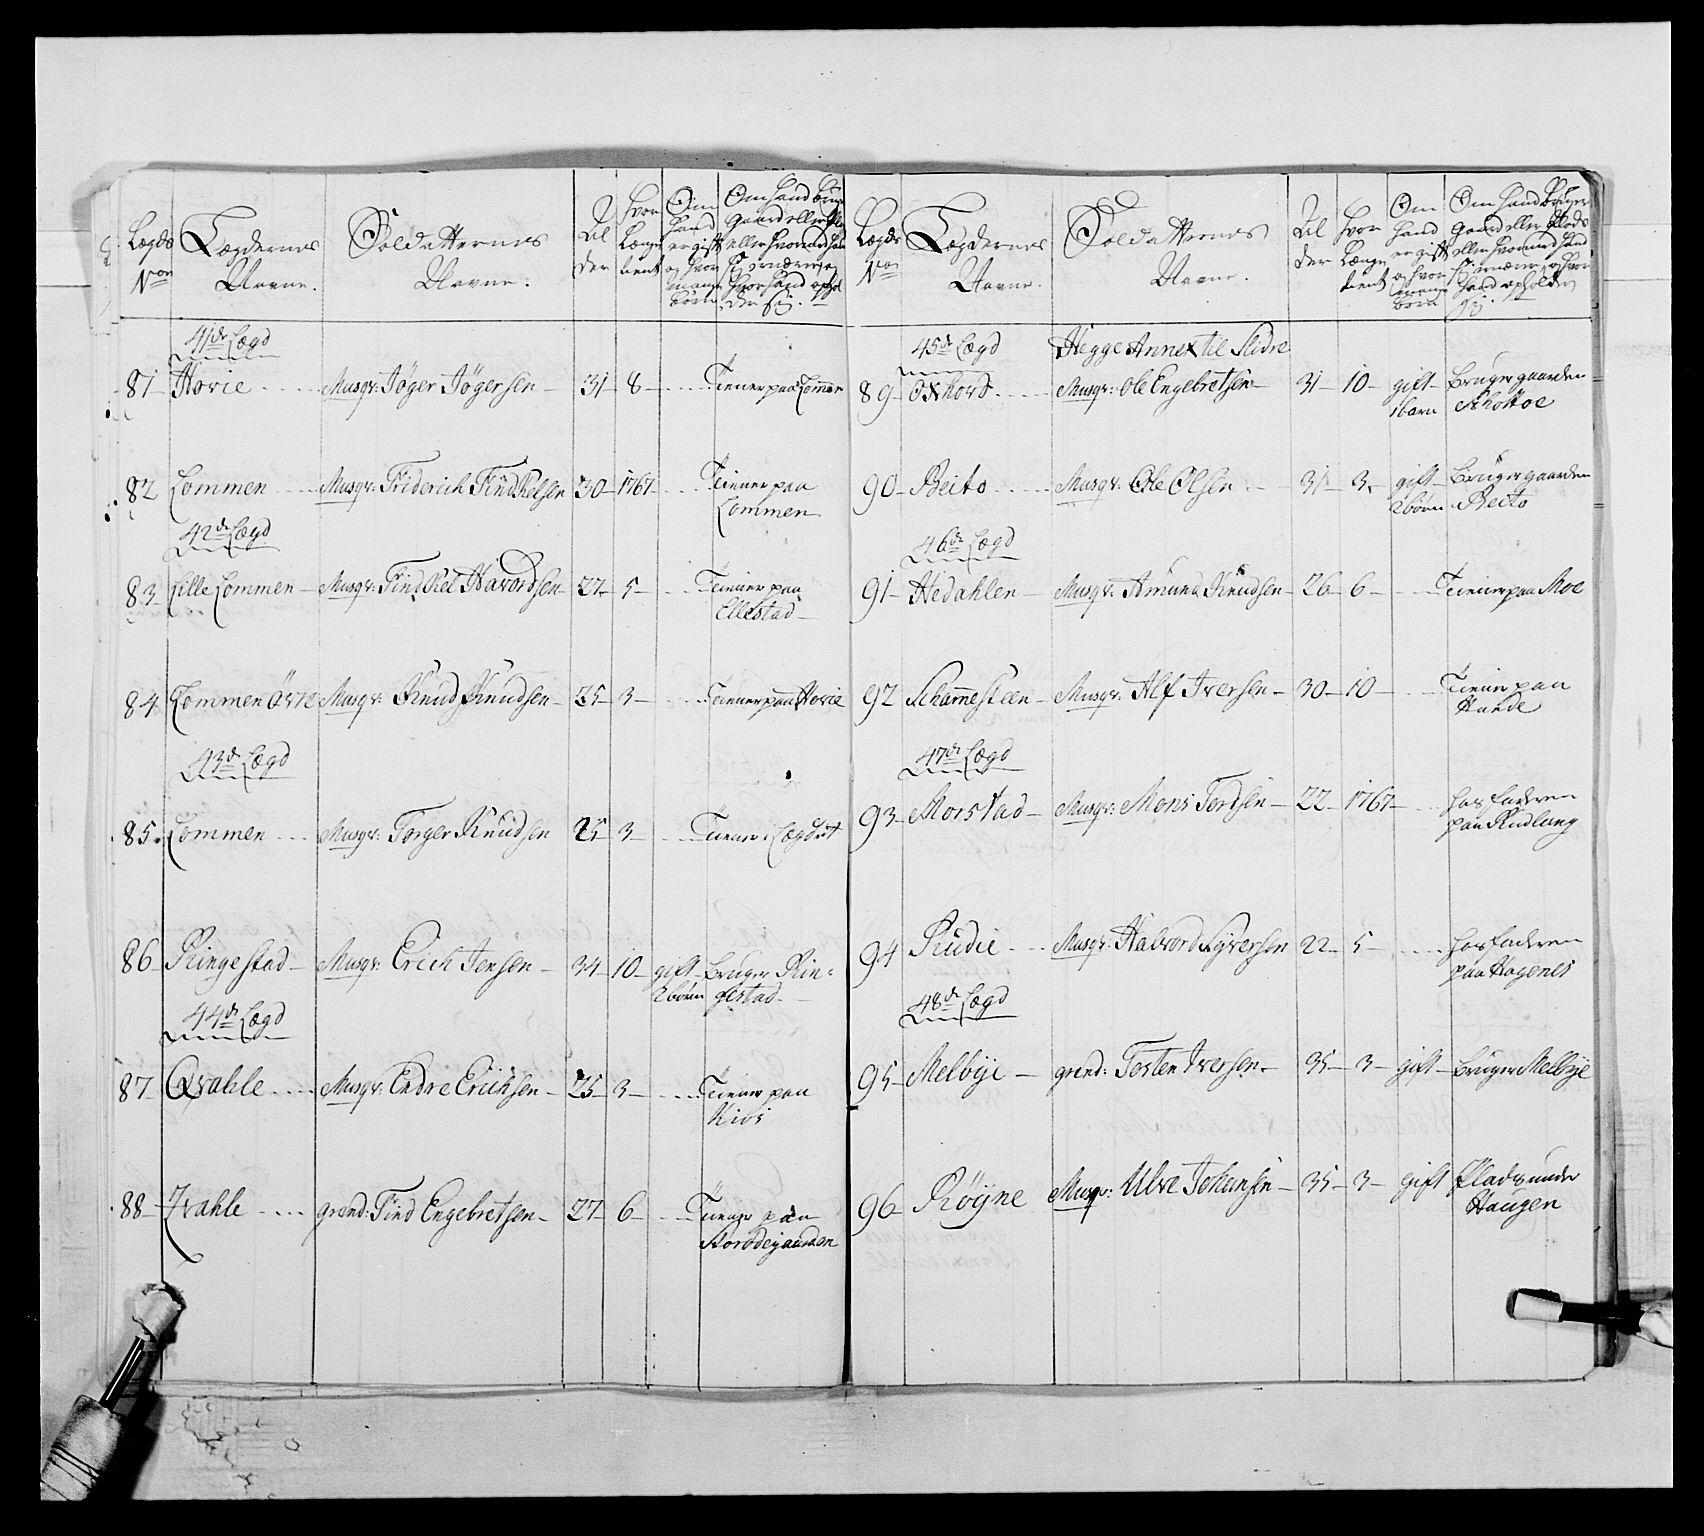 Lægds Nor
Lægdernes Navne.
Soldatternes Navne.
Al der
Hvor Længe tient
Om Hand er gift og hvor mange børn
Om hand bruger Gaard eller Plads eller hvormed hand sig ernærer og hvor hand opholder sig.
41de Lægd
81 Hovie Musqr: Jöger Jögersen 31 8 Tiener paa Lommen
82 Lommen Musqr: Friderich Find Kelsen 30 1767 Tiener paa
Lommen
42de Lægd
83 Lille Lommen Musqr: Find Kel Havordsen 27 5 Tiener paa
Ellestad
84 Lommen Övre Musqr: Knud Knudsen 25 3 Tiener paa Hovie
43de Lægd
85 Lommen Musqr: Torger Knudsen 25 3 Tiener i Lægdet
86 Ringestad Musqr: Erich Jensen 34 10 gift Bruger Rin=
2 börn gestad
44de Lægd
87 Qvahle Musqr: Endre Erichsen 25 3 Tiener paa
Kios
88 Qvahle grend: Find Engebretsen 27 6 Tiener paa
Lægds Nor
Lægdernes Navne.
Soldatternes Navne.
Al der
Hvor Længe tient
Om Hand er gift og hvor mange børn
Om Hand Bruger Gaard eller Plads eller hvormed hand sig ernærer, og hvor hand opholder sig.
45de Lægd Hegge Annex til Slidre
89 Oxhovd Musqr: Ole Engebretsen 31 10 gift Bruger gaarden
1 barn
90 Beito Musqr: Ole Olsen 31 3 gift Bruger gaarden
2 börn Beito
46de Lægd
91 Hedahlen Musqr: Amund Knudsen 26 6 Tiener paa Moe
92 Schammesteen Musqr: Alf Iversen 30 10 Tiener paa
Hande
47de Lægd
93 Morstad Musqr: Mons Tordsen 22 1767 hos faderen
paa
94 Rudie Musqr: Halvord Syversen 22 5 hos faderen
paa Hagenes
48de Lægd
95 Melbye grend: Tosten Iversen 35 3 gift Bruger Melbye
96 Röyne Musqr: Ulve Johansen 35 3 gift Plads under
Haugen